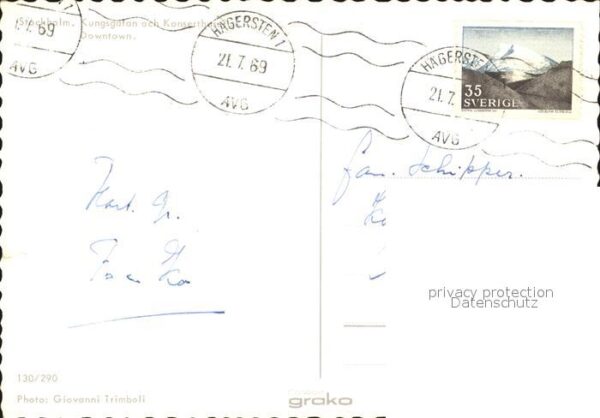 Stockholm. Kungsgatan och Konserthuset
Downtown.
21.7.69
AVG
HÄGERSTEN 1
21.7.69
AVG
HÄGERSTEN
21.7
AVG
35
SVERIGE
fam. Schipper.
Hart. gr.
privacy protection
Datenschutz
130/290
Photo: Giovanni Trimboli
grako